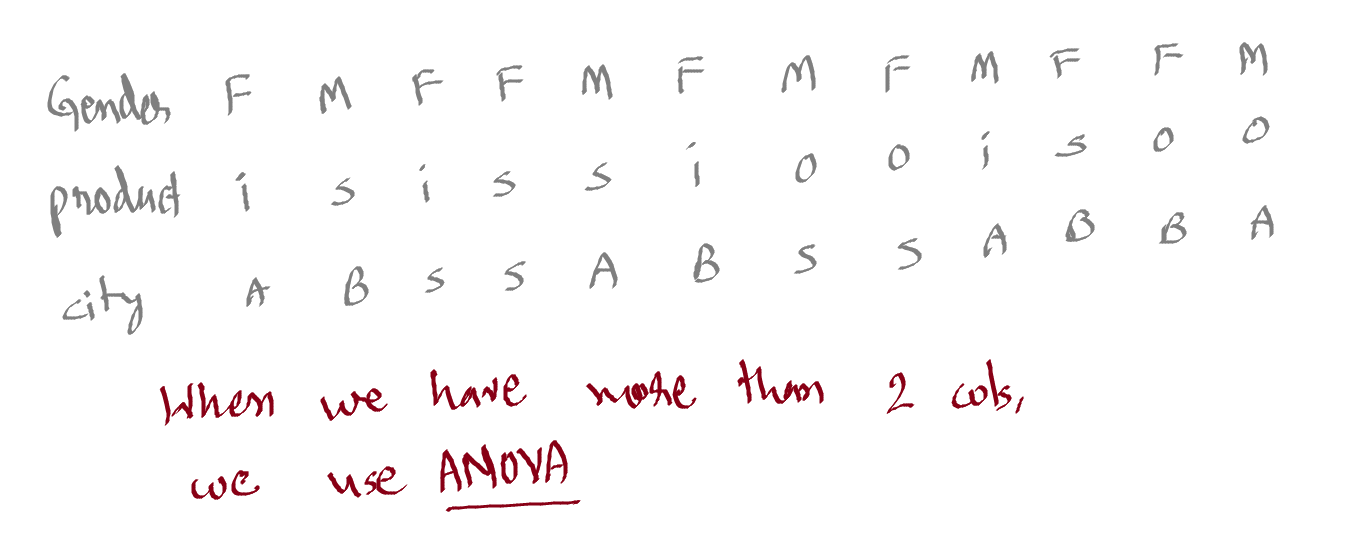 Gender F M F F M F M F M F F M
product i s i s s i o o i s o o
city A B S S A B S S A B B A
When we have more than 2 cols,
we use ANOVA